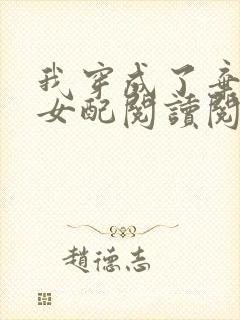 我穿成了弃
女配閱讀閱
趙德志